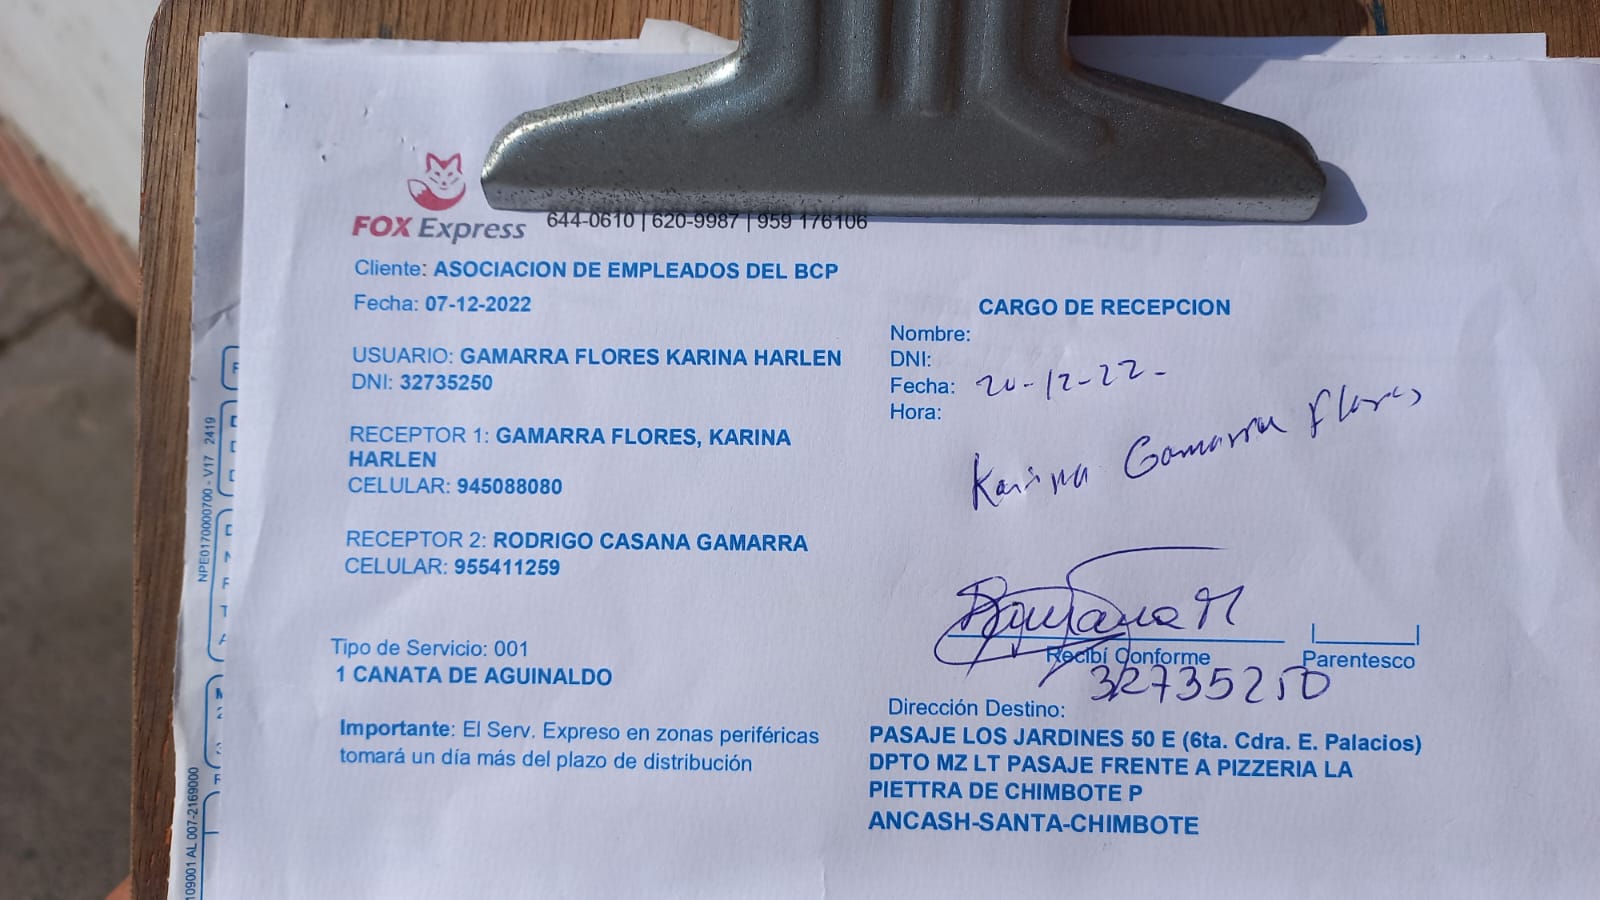 FOX Express
644-0610 | 620-9987 | 959 176106
Cliente: ASOCIACION DE EMPLEADOS DEL BCP
Fecha: 07-12-2022
USUARIO: GAMARRA FLORES KARINA HARLEN
DNI: 32735250
RECEPTOR 1: GAMARRA FLORES, KARINA
HARLEN
CELULAR: 945088080
RECEPTOR 2: RODRIGO CASANA GAMARRA
CELULAR: 955411259
Tipo de Servicio: 001
1 CANATA DE AGUINALDO
Importante: El Serv. Expreso en zonas periféricas
tomará un día más del plazo de distribución
CARGO DE RECEPCION
Nombre:
DNI:
Fecha: 20-12-22-
Hora:
Karina Gamarra Flores
Recibí Conforme
Parentesco
32735250
Dirección Destino:
PASAJE LOS JARDINES 50 E (6ta. Cdra. E. Palacios)
DPTO MZ LT PASAJE FRENTE A PIZZERIA LA
PIETTRA DE CHIMBOTE P
ANCASH-SANTA-CHIMBOTE
NPE0170000700 - V17 2419
109001 AL 007-2169000